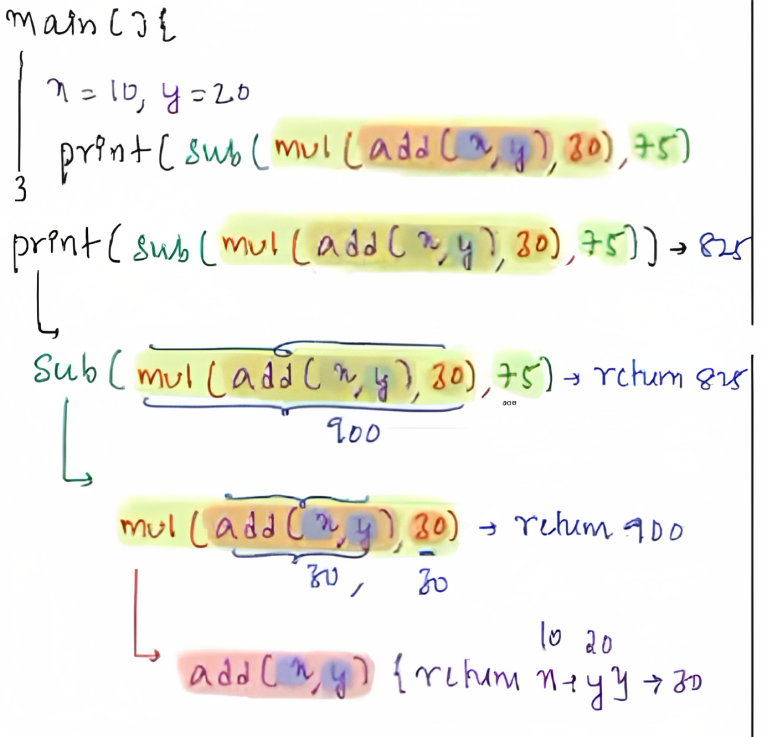 main(){
x = 10, y = 20
print(sub(mul(add(x,y),30),75)
}
print(sub(mul(add(x,y),30),75)) → 825
sub(mul(add(x,y),30),75) → return 825
900
mul(add(x,y),30) → return 900
30, 30
10 20
add(x,y) {return x+y} → 30